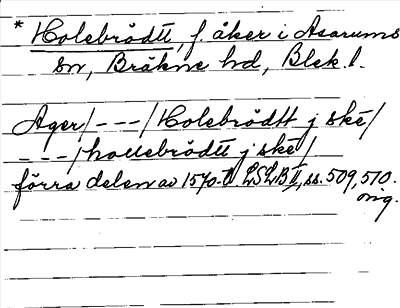 * Holebrödtt, f. åker i Asarums
sn, Bräkne hd, Blek. l.
Ager/---/Holebrödtt j ské/
---/hollebrödtt j ské/
förra delen av 1570-t. LSLB II, ss. 509, 510.
orig.